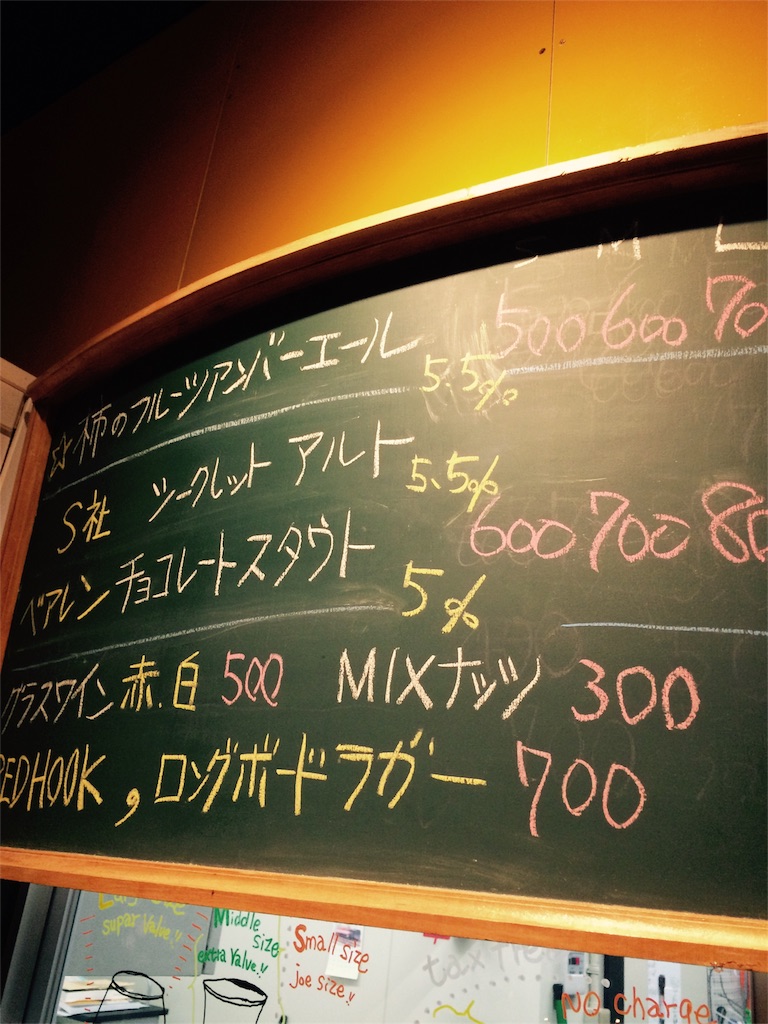 S M L
☆柿のフルーツアンバーエール 5.5% 500 600 70
S社 シークレット アルト 5.5%
ベアレン チョコレートスタウト 5% 600 700 80
グラスワイン赤.白 500 MIXナッツ 300
REDHOOK, ロングボードラガー 700
supar Valve!!
Middle size
extra Valve!!
Small size
joe size!!
tax free
NO charge